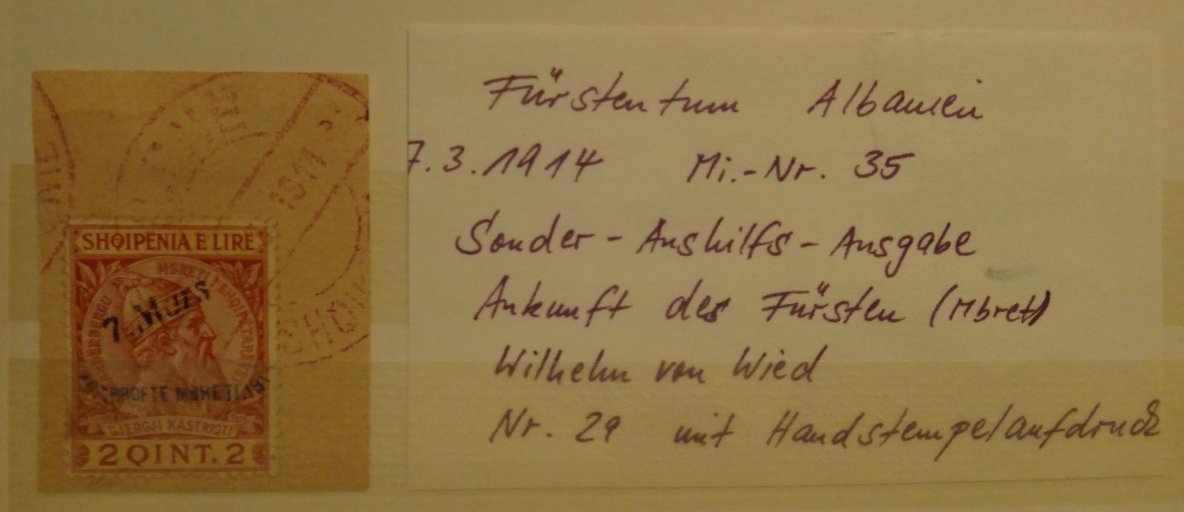 SHQIPËNIA E LIRË
7 MIJES
GJERGJ KASTRIOTI
2 QINT. 2
Fürstentum Albanien
7.3.1914 Mi.-Nr. 35
Sonder-Aushilfs-Ausgabe
Ankunft des Fürsten (Mbret)
Wilhelm von Wied
Nr. 29 mit Handstempelaufdruck